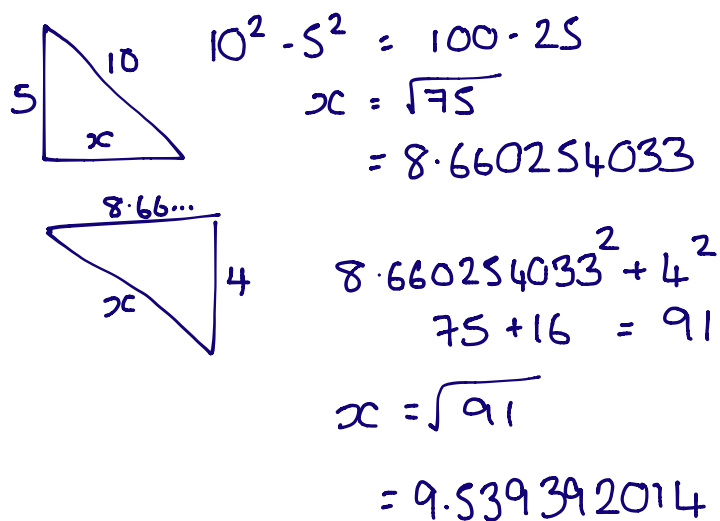 5
10
x
10² - 5² = 100 - 25
x = √75
= 8.660254033
8.66...
4
x
8.660254033² + 4²
75 + 16 = 91
x = √91
= 9.539392014